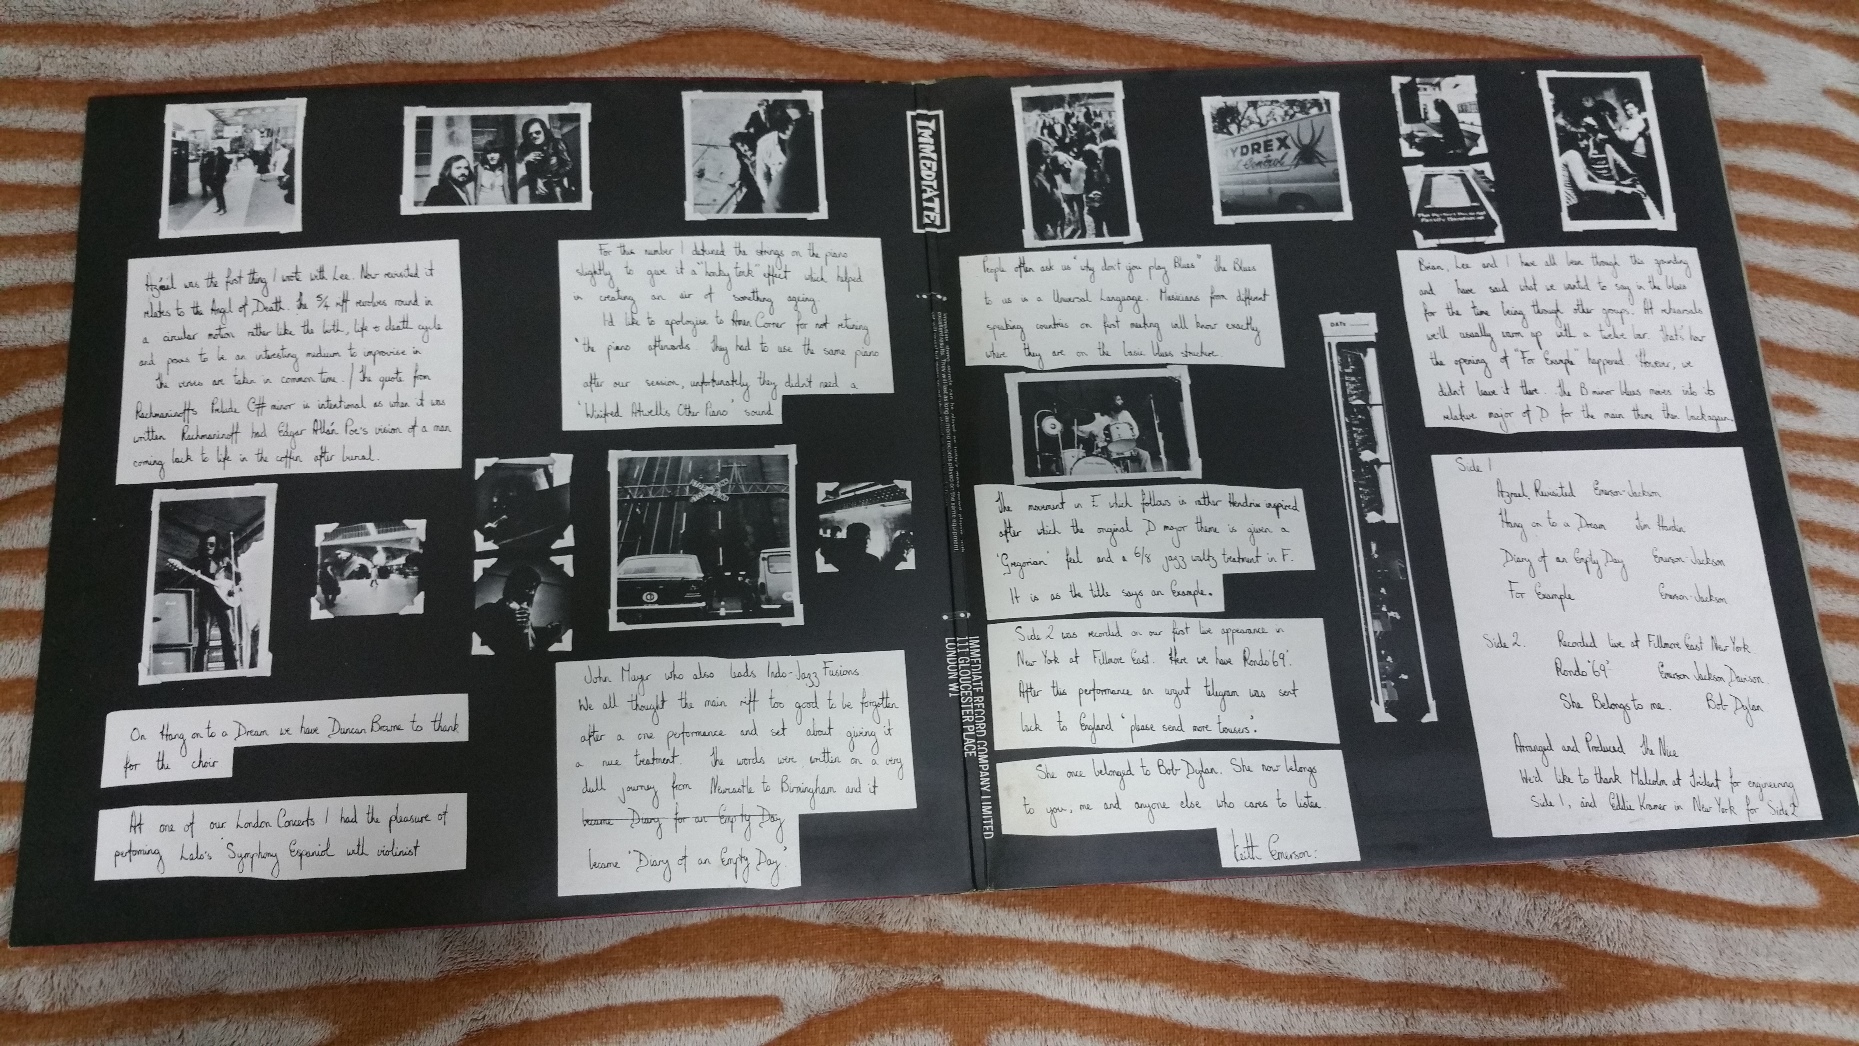 Azrael was the first thing I wrote with Lee. Now revisited it
relates to the Angel of Death. the 5/4 riff revolves round in
a circular motion rather like the birth, life & death cycle
and proves to be an interesting medium to improvise in
the verses are taken in common time. / the quote from
Rachmaninoffs Prelude C# minor is intentional as when it was
written Rachmaninoff had Edgar Allan Poe's vision of a man
coming back to life in the coffin after burial.
On Hang on to a Dream we have Duncan Browne to thank
for the choir
At one of our London Concerts I had the pleasure of
performing Lalo's 'Symphony Espaniol with violinist
For this number I detuned the strings on the piano
slightly to give it a "honky tonk" effect which helped
in creating an air of something ageing.
I'd like to apologise to Amen Corner for not retuning
the piano afterwards. They had to use the same piano
after our session, unfortunately they didn't need a
'Winifred Atwells Other Piano' sound
John Mayer who also leads Indo-Jazz Fusions
We all thought the main riff too good to be forgotten
after a one performance and set about giving it
a nice treatment. The words were written on a very
dull journey from Newcastle to Birmingham and it
became Diary for an Empty Day
became "Diary of an Empty Day."
IMMEDIATE
IMMEDIATE RECORD COMPANY LIMITED
111 GLOUCESTER PLACE
LONDON W1
HYDREX
Pest Control
People often ask us "why don't you play Blues" the Blues
to us is a Universal Language. Musicians from different
speaking countries on first meeting will know exactly
where they are on the basic blues structure.
The movement in E which follows is rather Hendrix inspired
after which the original D major theme is given a
'Gregorian' feel and a 6/8 jazz waltz treatment in F.
It is as the title says an Example.
Side 2 was recorded on our first live appearance in
New York at Fillmore East. Here we have Rondo '69'.
After this performance an urgent telegram was sent
back to England "please send more trousers".
She once belonged to Bob Dylan. She now belongs
to you, me and anyone else who cares to listen.
Keith Emerson:
DATE
Brian, Lee and I have all been through this grounding
and have said what we wanted to say in the blues
for the time being through other groups. At rehearsals
we'll usually warm up with a twelve bar. that's how
the opening of "For Example" happened. However, we
didn't leave it there. the B minor blues moves into its
relative major of D for the main theme then back again.
Side 1
Azrael, Revisited Emerson-Jackson
Hang on to a Dream Tim Hardin
Diary of an Empty Day Emerson-Jackson
For Example Emerson-Jackson
Side 2. Recorded live at Fillmore East New York
Rondo '69' Emerson Jackson Davison
She Belongs to me. Bob Dylan
Arranged and Produced The Nice
We'd like to thank Malcolm at Trident for engineering
Side 1, and Eddie Kramer in New York for Side 2